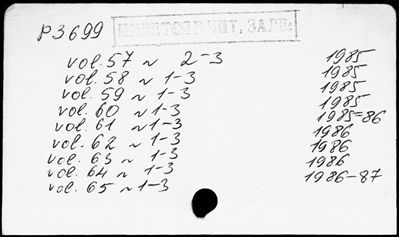 P3699 ИМЕЕТСЯ В ЧИТ. ЗАЛЕ:
vol. 57 N 2-3 1985
vol. 58 N 1-3 1985
vol. 59 N 1-3 1985
vol. 60 N 1-3 1985
vol. 61 N 1-3 1985=86
vol. 62 N 1-3 1986
vol. 63 N 1-3 1986
vol. 64 N 1-3 1986
vol. 65 N 1-3 1986-87